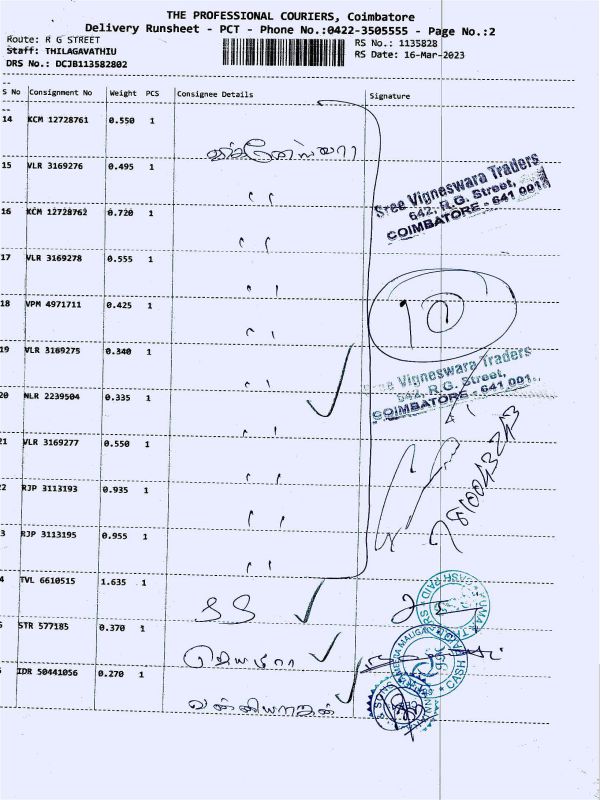 THE PROFESSIONAL COURIERS, Coimbatore
Delivery Runsheet - PCT - Phone No.:0422-3505555 - Page No.:2
Route: R G STREET
RS No.: 1135828
Staff: THILAGAVATHIU
RS Date: 16-Mar-2023
DRS No.: DCJB113582802
S No Consignment No Weight PCS Consignee Details Signature
14 KCM 12728761 0.550 1
15 VLR 3169276 0.495 1
Sree Vigneswara Traders
642, R.G. Street,
COIMBATORE - 641 001
16 KCM 12728762 0.720 1
17 VLR 3169278 0.555 1
18 VPM 4971711 0.425 1
10
19 VLR 3169275 0.340 1
Sree Vigneswara Traders
642, R.G. Street,
COIMBATORE - 641 001
20 NLR 2239504 0.335 1
21 VLR 3169277 0.550 1
22 RJP 3113193 0.935 1
3 RJP 3113195 0.955 1
4 TVL 6610515 1.635 1
SS
STR 577185 0.370 1
ஜெயமாதா
IDR 50441056 0.270 1